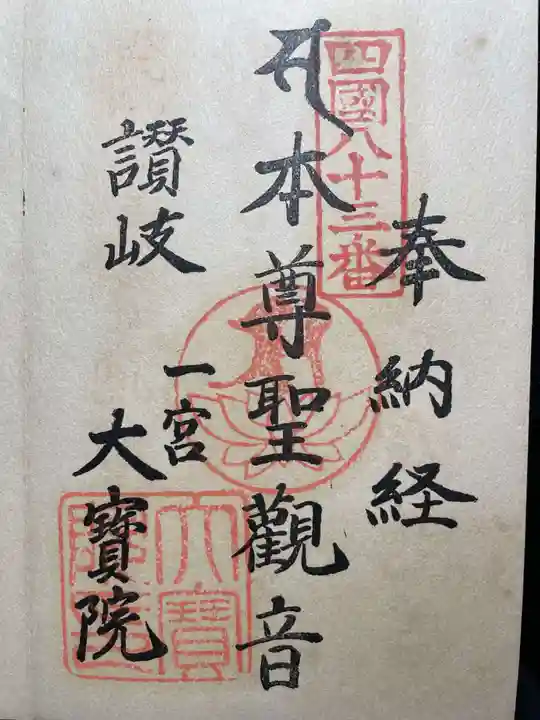 四國八十三番
奉納経
本尊聖觀音
讃岐
一宮
大寶院
大寶